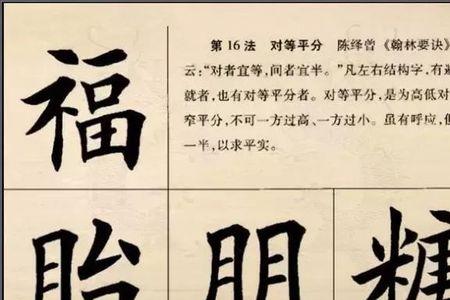 福
第16法 对等平分 陈绎曾《翰林要诀》
云:“对者宜等,间者宜半。”凡左右结构字,有避
就者,也有对等平分者。对等平分,是为高低对
窄平分,不可一方过高、一方过小。虽有呼应,但
一半,以求平实。
眙 朋 糖